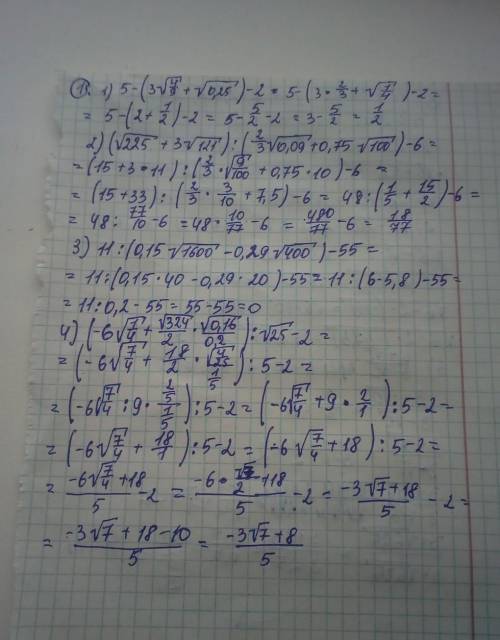 ①. 1) 5-(3√(4/9)+√0,25)-2 = 5-(3·2/3+√(7/4))-2=
= 5-(2+1/2)-2 = 5-5/2-2 = 3-5/2 = 1/2
2) (√225 + 3√121) : (2/3√0,09+0,75·√100)-6=
= (15+3·11) : (2/3·√(9/100)+0,75·10)-6 =
= (15+33) : (2/3·3/10+7,5)-6 = 48:(1/5+15/2)-6 =
= 48 : 77/10-6 = 48·10/77-6 = 480/77-6 = 18/77
3) 11:(0,15·√1600-0,29·√400)-55=
= 11:(0,15·40-0,29·20)-55= 11:(6-5,8)-55=
= 11:0,2-55=55-55=0
4) (-6√(7/4)+√324/2·√0,16/0,2):√25-2=
= (-6√(7/4)+18/2·√(4/25)/(1/5)):5-2=
= (-6√(7/4):9·(2/5)/(1/5)):5-2=(-6√(7/4)+9·2/1):5-2=
= (-6√(7/4)+18/1):5-2=(-6√(7/4)+18):5-2=
= (-6√(7/4)+18)/5-2 = (-6·√7/2+18)/5-2 = (-3√7+18)/5-2=
= (-3√7+18-10)/5 = (-3√7+8)/5